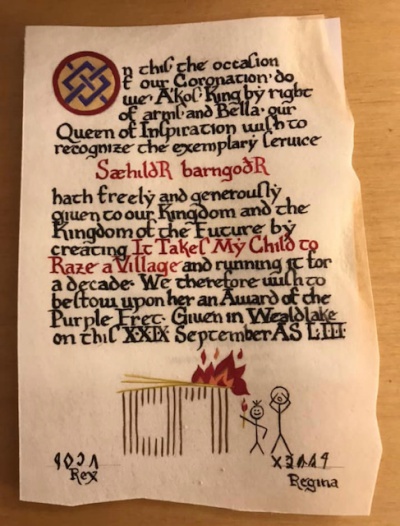 On this the occasion
of our Coronation, do
we, A'kos King by right
of arms, and Bella, our
Queen of Inspiration wish to
recognize the exemplary service
SæhildR barngoðR
hath freely and generously
given to our Kingdom and the
Kingdom of the Future by
creating It Takes My Child to
Raze a Village and running it for
a decade. We therefore wish to
bestow upon her an Award of the
Purple Fret. Given in Wealdlake
on this XXIX September AS LIII
Rex
Regina